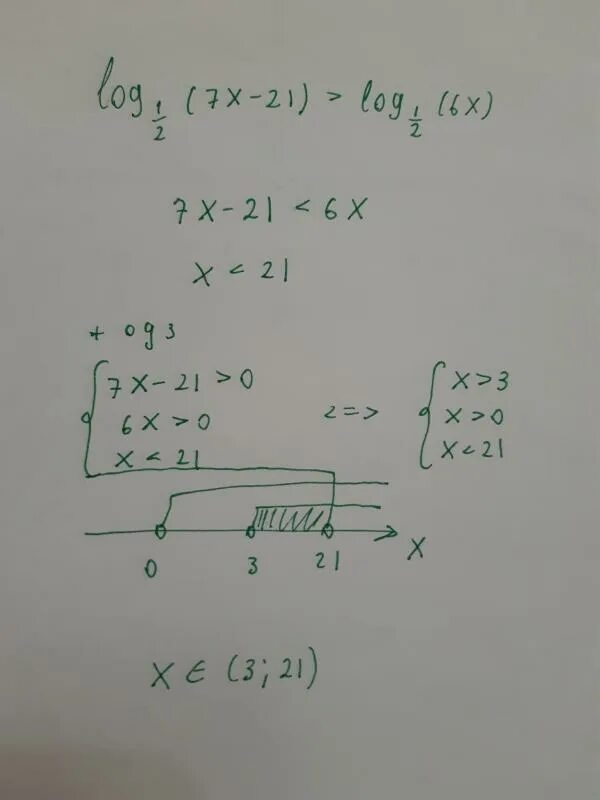 log 1/2 (7x-21) > log 1/2 (6x)
7x-21 < 6x
x < 21
+ ОДЗ
7x-21 > 0
6x > 0
x < 21
<=>
x > 3
x > 0
x < 21
0 3 21 x
x ∈ (3; 21)